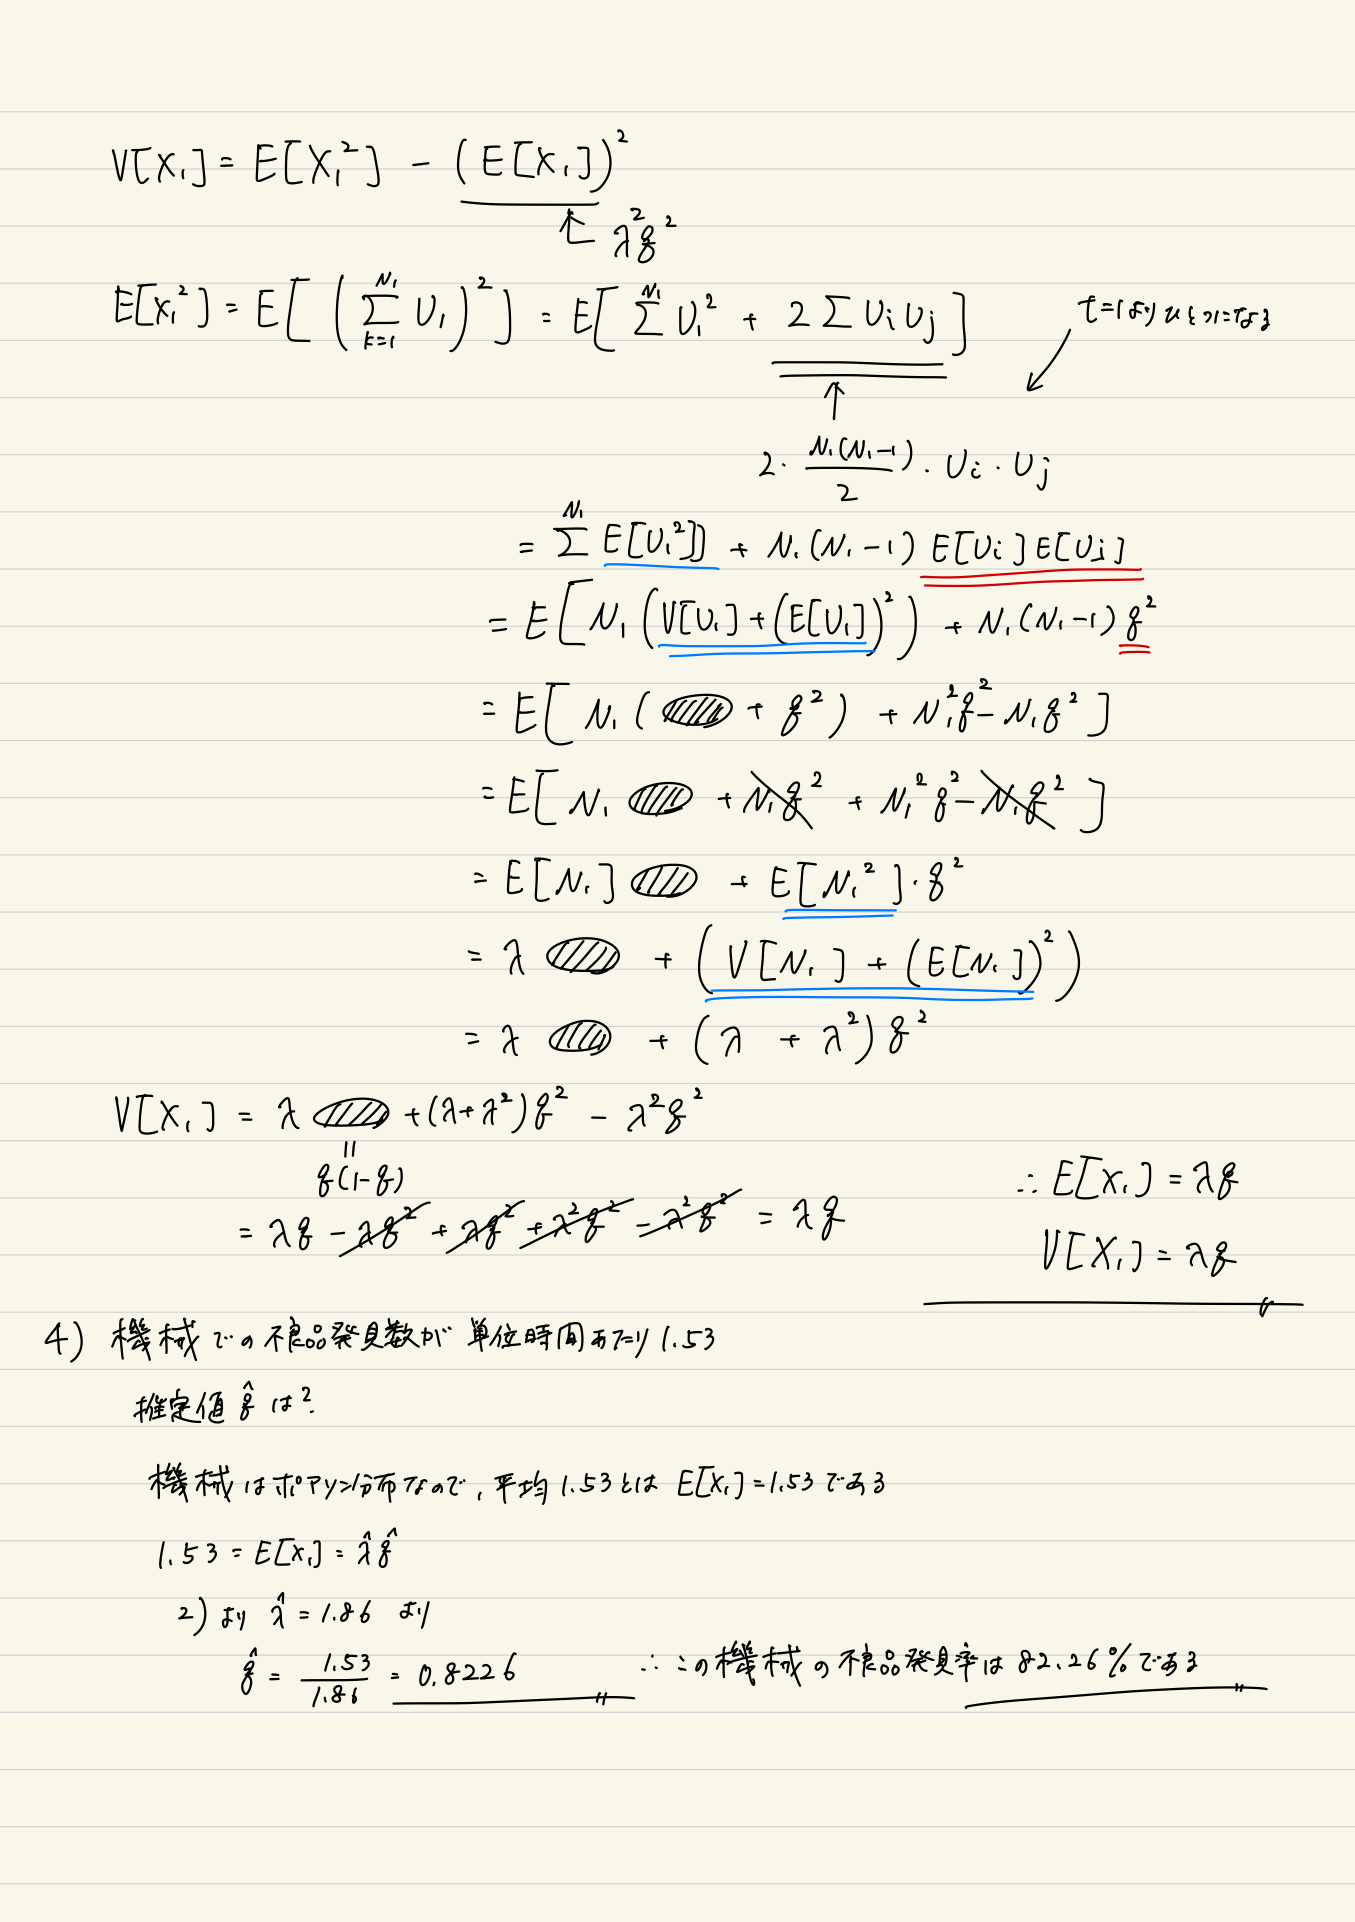 V[X₁] = E[X₁²] - (E[X₁])²
↑ λ²q²
E[X₁²] = E[(∑_{k=1}^{N₁} U₁)²] = E[∑^{N₁} U₁² + 2∑UᵢUⱼ]
t=1よりひとつになる
2・N₁(N₁-1)/2・Uᵢ・Uⱼ
= ∑^{N₁} E[U₁²]] + N₁(N₁-1) E[Uᵢ]E[Uⱼ]
= E[N₁(V[U₁]+(E[U₁])²) + N₁(N₁-1)q²
= E[N₁( + q²) + N₁²q² - N₁q²]
= E[N₁ + N₁q² + N₁²q² - N₁q²]
= E[N₁] + E[N₁²]・q²
= λ + (V[N₁] + (E[N₁])²)
= λ + (λ + λ²)q²
V[X₁] = λ + (λ+λ²)q² - λ²q²
q(1-q)
= λq - λq² + λq² + λ²q² - λ²q² = λq
∴ E[X₁] = λq
V[X₁] = λq
4) 機械での不良品発見数が単位時間あたり1.53
推定値 q̂ は?
機械はポアソン分布なので,平均1.53とは E[X₁]=1.53である
1.53 = E[X₁] = λ̂q̂
2)より λ̂ = 1.86 より
q̂ = 1.53/1.86 = 0.8226
∴ この機械の不良品発見率は82.26%である